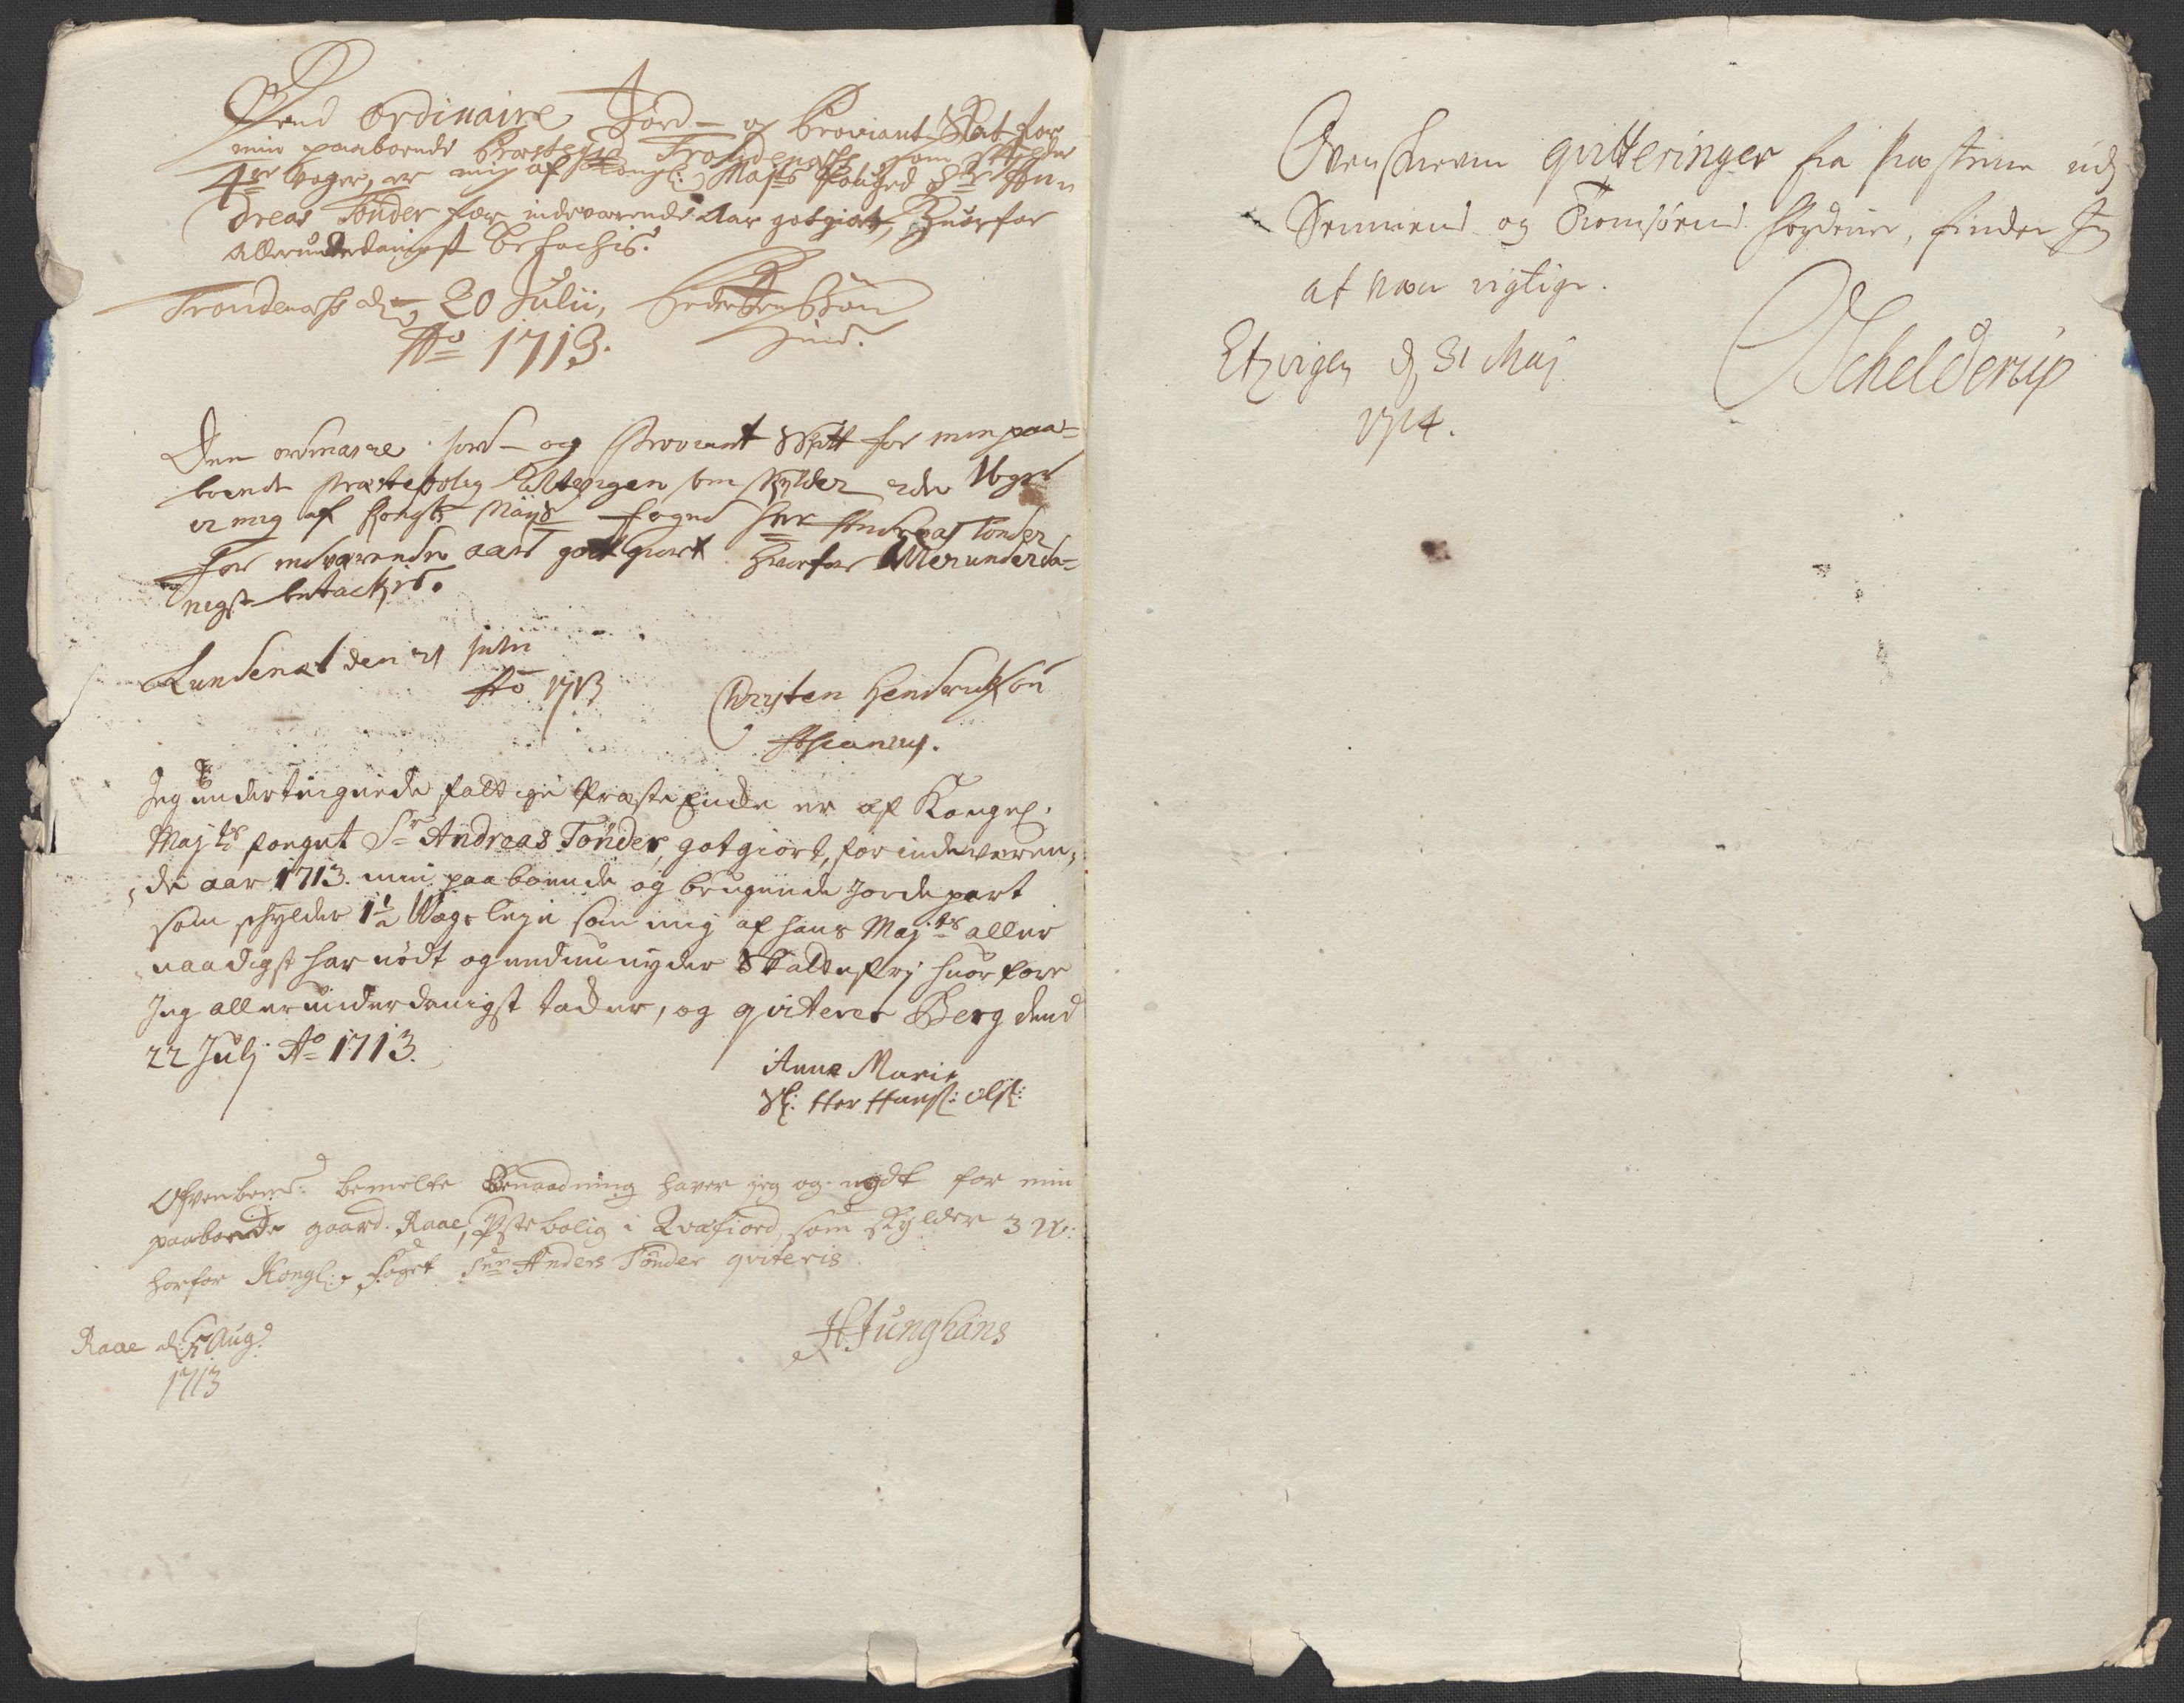 Dend Ordinaire Jord- og Proviant Skat for
min paaboende Præstegd Trondenæss som skylder
4re Woger, er mig af Kongl: Majts Fouged Sr An
dreas Tønder for indeværende Aar gotgiort, Huorfor
allerunderdanigst betachis.
Trondenæss d. 20 Julii,
Ao 1713.
Den ordinaire Jord- og Proviant Skatt for min paa-
boende Præstebolig som skylder Woger
er mig af Kongl: Mayts foged Sr Andreas Tønder
for indværende aar gott giort hvorfor Allerunderda-
nigst betackis.
Sandenæs den 21 Julii
Ao 1713
Christen Hendrichsøn
Jeg undertegnede fattige Præste Encke er af Kongel.
Maj:ts fougut Sr Andreas Tønder, gotgiort, for indeværen,
,de aar 1713. min paaboende og brugende Jorde part
som schylder 1½ Wogs leje som mig af hans Maj:ts aller
naadigst har nødt og endnu nyder Skattefrj huorfore
Jeg allerunderdanigst tacker, og qviterer Berg dend
22 Julj Ao 1713.
Anne Marie
Sl: Her Hans: Ols:
Ofvenbemd: bemelte Benaadning haver jeg og nødt for min
paaboende gaard Raae, Pstebolig i Qvæfiord, som skylder 3 W:
horfor Kongl: Foget Snr Anders Tønder qviteris.
Raae d: 5 Aug:
1713
H Junghans
Ovenschrevne qvitteringer fra Præsterne udj
Senniens og Tromsøens fogderier, finder Jeg
at være rigtige.
d. 31 Maj
1714.
Schelderup